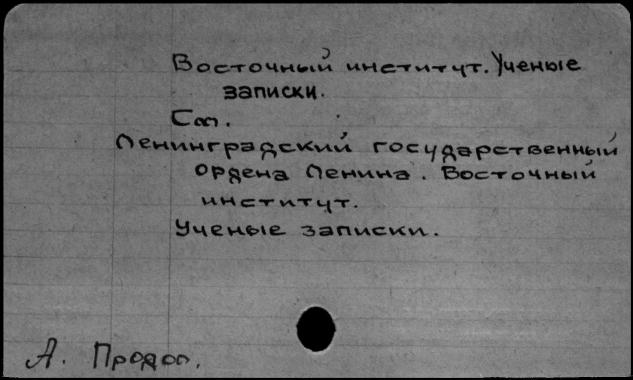 Восточный институт. Ученые
записки.
См.
Ленинградский государственный
ордена Ленина. Восточный
институт.
Ученые записки.
А. Продол.